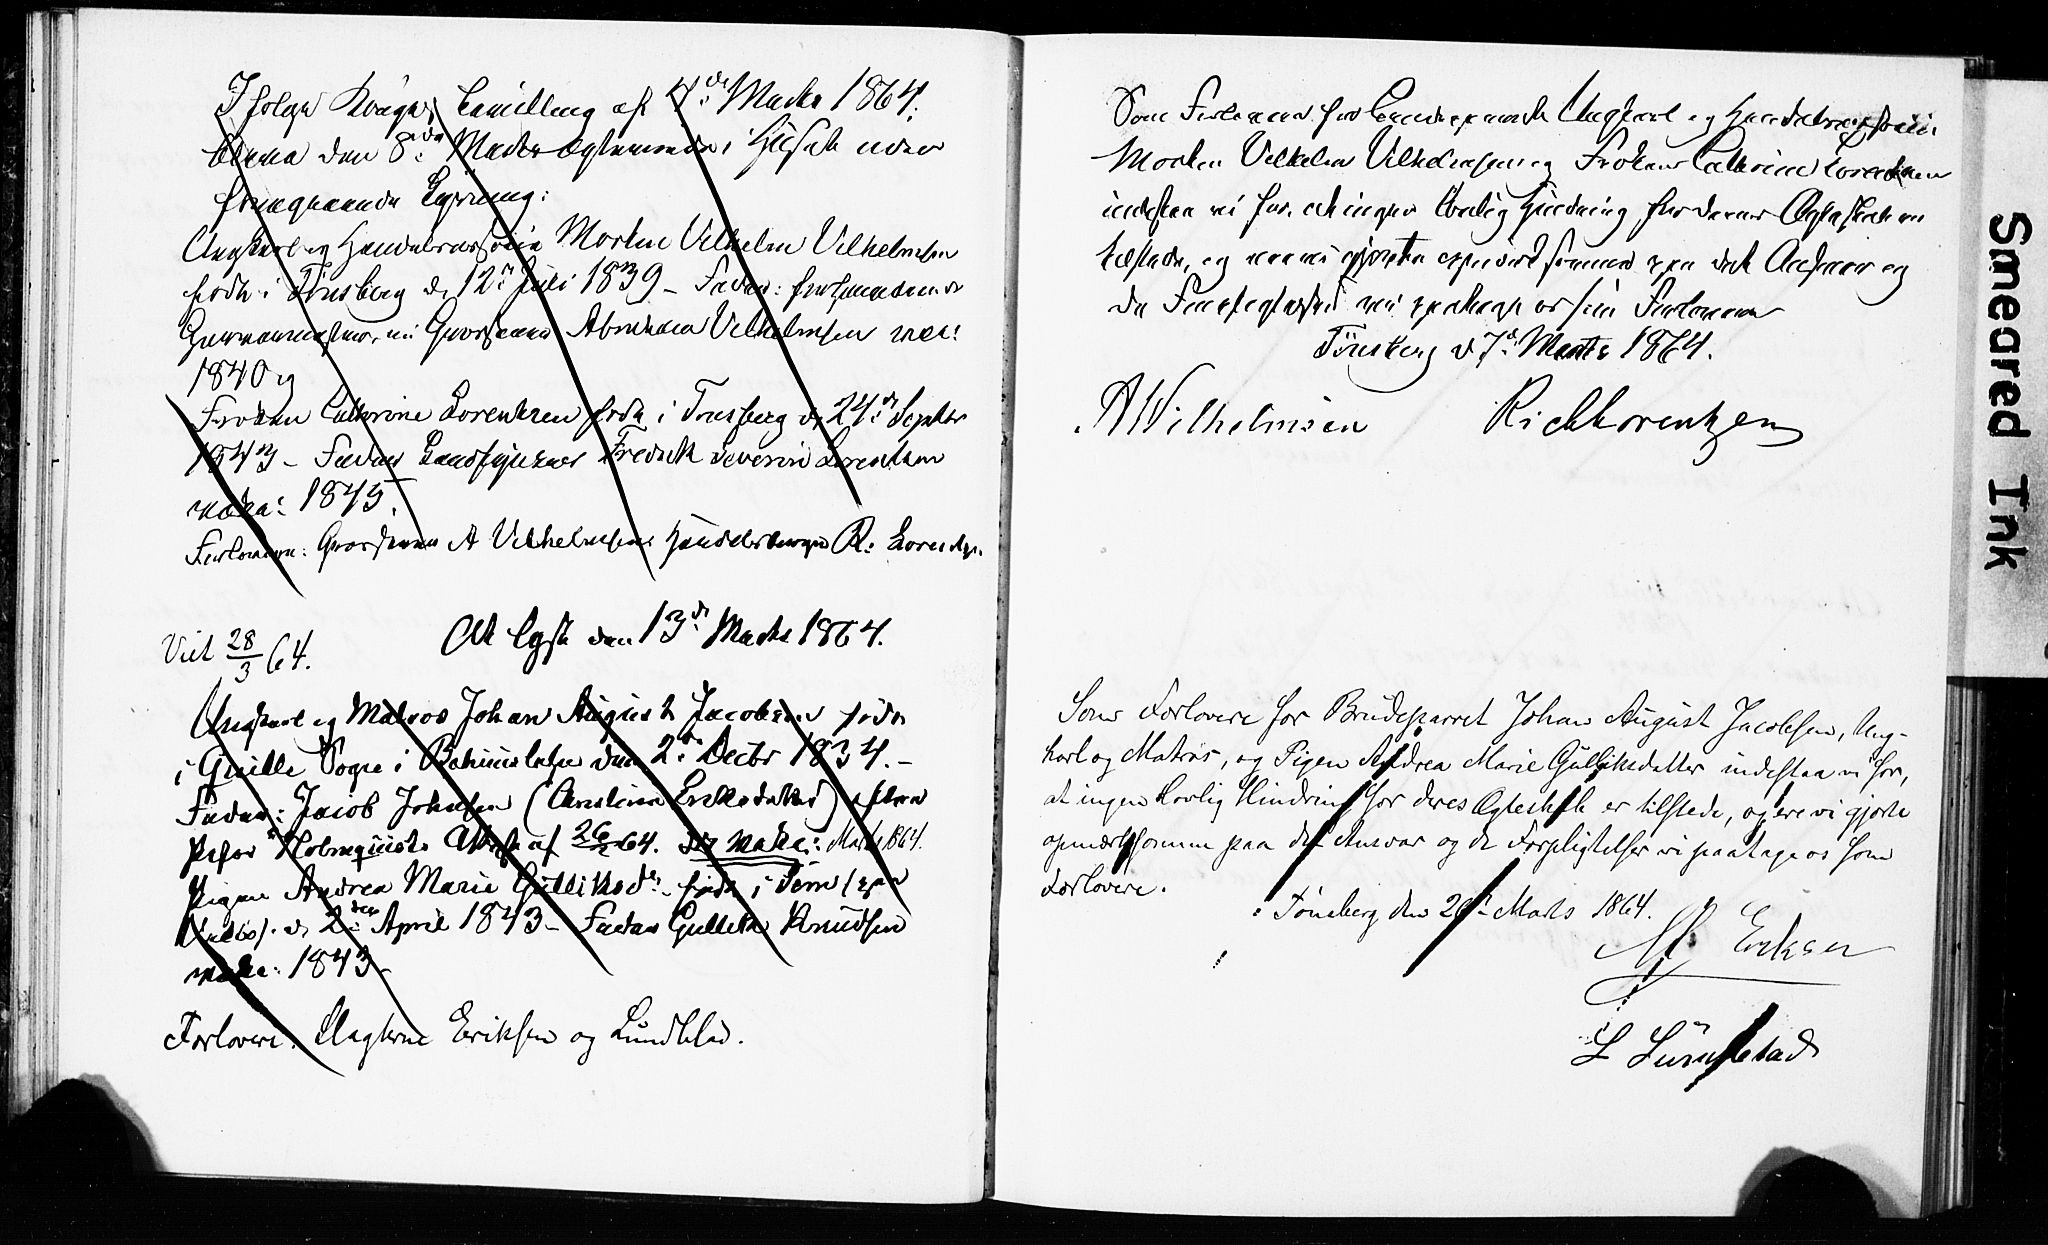 Ifølge Kongel. Bevilling af 4de Marts 1864.
bleve den 8de Marts Ægteviede i Huset uden
foregaaende Lysning:
Ungkarl og Handels Morten Vilhelm Vilhelmsen
fødte i Tönsberg d. 12te Juli 1839 – Fader: forhenværende
nu Grosserer Abraham Vilhelmsen vac:
1840 og
Frøken Cathrine Lorentzen født i Tønsberg d. 24de Septbr
1843 – Fader Fredrik Severin Lorentzen
vac: 1845.
Forlovere: Grosserer A Vilhelmsen R: Lorentzen.
At lyse den 13de Marts 1864.
Viet 28/3 64.
Ungkarl og Matros Johan August Jacobsen født
i Qville Sogn i Bahuuslehn den 2den Decbr 1834. –
Fader: Jacob Johnsen (Christina Eriksdatter) efter
Holmquists Attest af 26/2 64. Marts 1864.
Pigen Andrea Marie Gulliksd: født i Sem (paa
d. 2den April 1843 – Fader Gullik Knudsen
vac: 1843 –
Forlovere: Slagterne Eriksen og Lundblad.
Som Forlovere for Brudeparret Ungkarl og Handels
Morten Vilhelm Vilhelmsen og Frøken Cathrine Lorentzen
indestaa vi for, at ingen lovlig Hindring for deres Ægteskab er
tilstede, og ere vi gjorte opmærksomme paa det Ansvar og
de Forpligtelser vi paatage os som Forlovere
Tönsberg d 7de Marts 1864.
A Wilhelmsen Rich Lorentzen
Som Forlovere for Brudeparret Johan August Jacobsen, Ung-
karl og Matros, og Pigen Andrea Marie Gulliksdatter indestaa vi for,
at ingen Lovlig Hindring for deres Ægteskab er tilstede, og ere vi gjorte
opmærksomme paa det Ansvar og de Forpligtelser vi paatage os som
Forlovere.
Tönsberg den 26de Marts 1864.
Eriksen
L
Smeared Ink